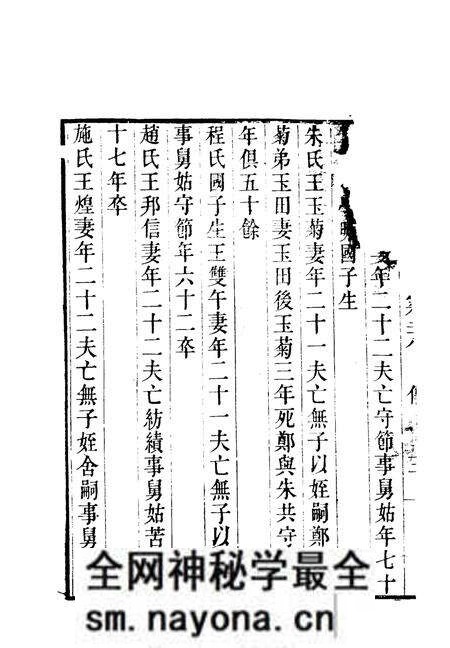 年二十二夫亡守節事舅姑年七十
國子生
朱氏王玉菊妻年二十一夫亡無子以姪嗣鄭
菊弟玉田妻玉田後玉菊三年死鄭與朱共守
年俱五十餘
程氏國子生王雙午妻年二十一夫亡無子以
事舅姑守節年六十二卒
趙氏王邦信妻年二十二夫亡紡績事舅姑苦
十七年卒
施氏王煌妻年二十二夫亡無子姪舍嗣事舅
全网神秘学最全
sm.nayona.cn